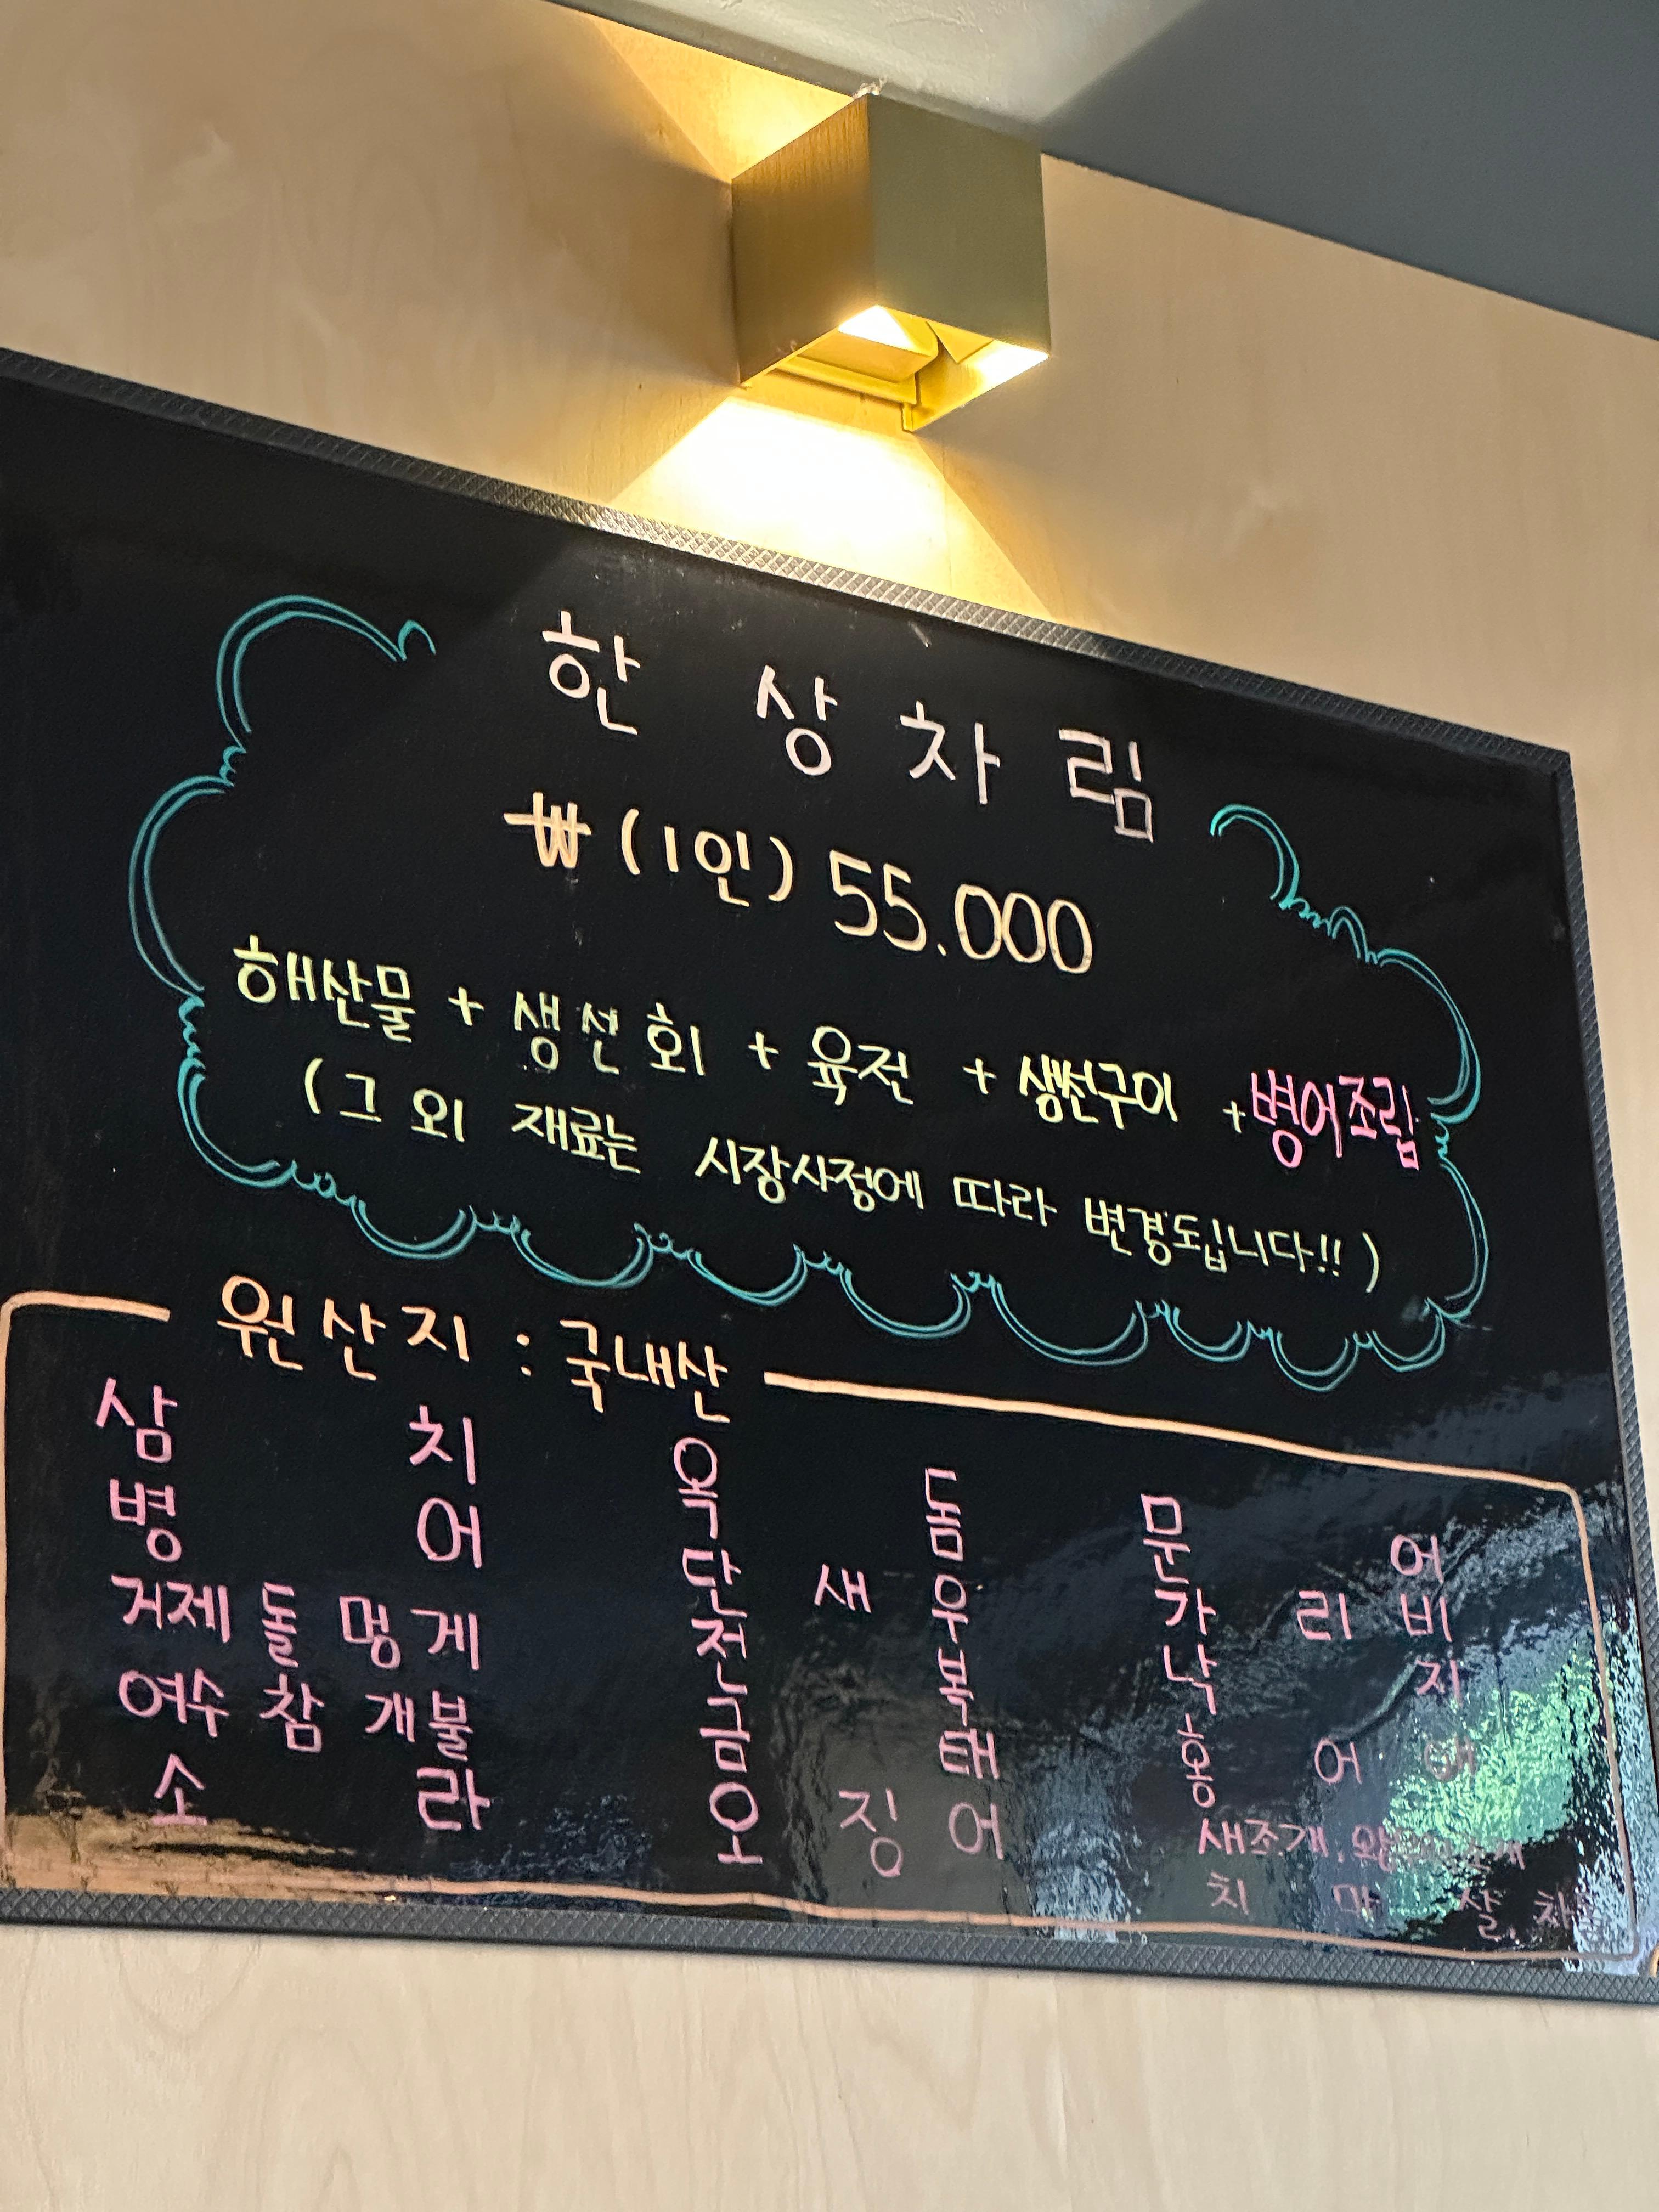 한 상차림
₩(1인) 55.000
해산물 + 생선회 + 육전 + 생선구이 + 병어조림
(그 외 재료는 시장사정에 따라 변경도됩니다!!)
원산지 : 국내산
삼치 옥돔 문어
병어 단새우 가리비
거제돌멍게 전복 낙지
여수참개불 금태 홍어애
소라 오징어 새조개,
치마살,